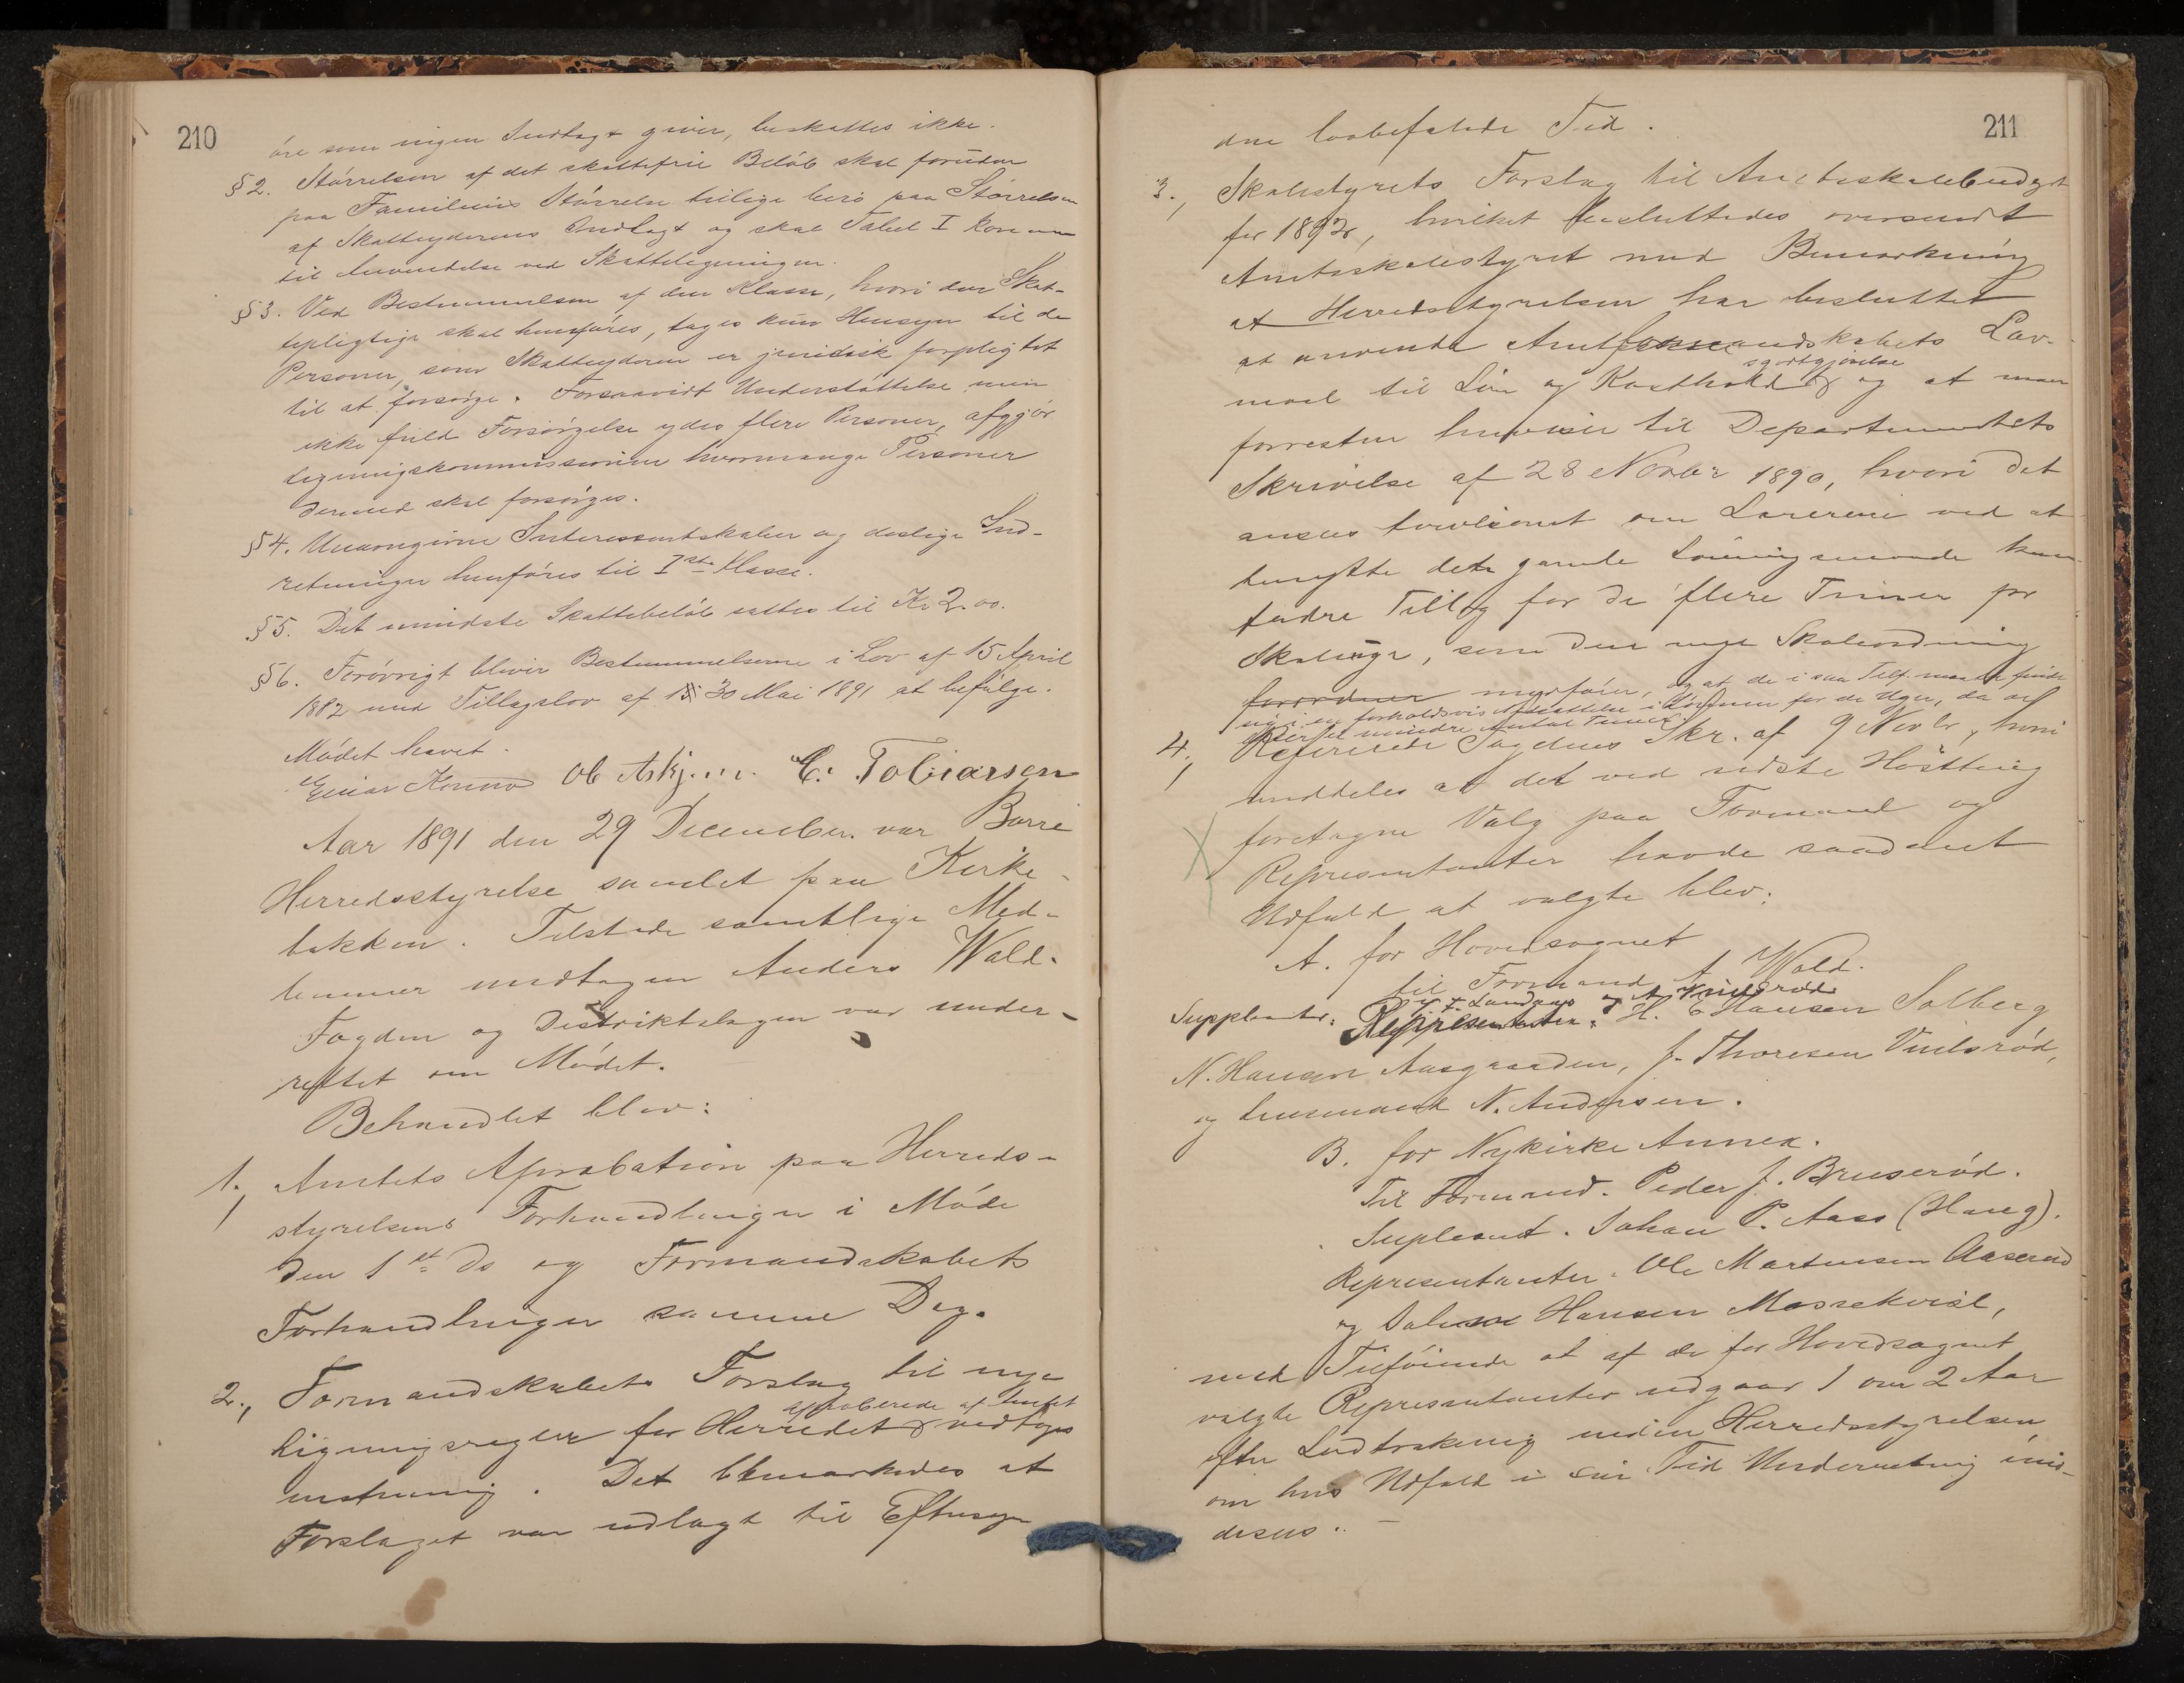 210
öre som ingen Indtægt giver, beskattes ikke.
§ 2. Störrelsen af det skattefrie Belöb skal foruden
paa Familiens Störrelse tillige bero paa Störrelsen
af Skatteyderens Indtægt og skal Tabel I komme
til Anvendelse ved Skatteligningen.
§ 3. Ved Bestemmelsen af den Klasse, hvori den Skat-
tepligtige skal henföres, tages kun Hensyn til de
Personer, som Skatteyderen er juridisk forpligtet
til at forsörge. Forsaavidt Understöttelse men
ikke fuld Forsörgelse ydes flere Personer, afgjör
Ligningskommissionen hvormange Personer
dermed skal forsörges.
§ 4. Unavngivne Interessentskaber og deslige Ind-
retninger henföres til 1ste Klasse.
§ 5. Det mindste Skattebelöb sættes til Kr 2.00.
§ 6. Forövrigt bliver Bestemmelserne i Lov af 15 April
1882 med Tillægslov af 30 Mai 1891 at befölge.
Mödet hævet.
C. Tobiassen
Aar 1891 den 29 December var Borre
Herredsstyrelse samlet paa Kirke-
bakken. Tilstede samtlige Med-
lemmer undtagen Anders Wold.
Fogden og Distriktslægen var under-
rettet om Mödet.
Behandlet blev:
1., Amtets Aprobation paa Herreds-
styrelsens Forhandlinger i Möde
den 1ste Ds og Formandskabets
Forhandlinger samme Dag.
2., Formandskabets Forslag til nye
approberede af Amtet
Ligningsregler for Herredet vedtoges
enstemmig. Det bemærkedes at
Forslaget var udlagt til Eftersyn
211
den lovbefalede Tid.
3., Skolestyrets Forslag til Amtsskolebudget
for 1892, hvilket besluttedes oversendt
Amtsskolestyret med Bemærkning
at Herredsstyrelsen har besluttet
at anvende Amtformandskabets Lav-
sgodtgjörelse
maal til Lön og Kosthold og at man
forresten henviser til Departementets
Skrivelse af 28 Novbr 1890, hvori det
ansees tvivlsomt om Lærerne ved at
benytte det gamle Lönningsmaade kan
fordre Tillæg for de flere Timer pr
Skoleuge, som den nye Skoleordning
forordner medförer, og at de i saa Tilf. maatte finde
sig i en forholdsvis Nedsættelse i Lönnen for de Uger, da de
mindre Antal Timer.
4., Refererede Fogdens Skr. af 9 Novbr, hvori
meddeles at det ved sidste Höstthing
foretagne Valg paa Formand og
Representanter havde saadant
Udfald at valgte blev:
A. for Hovedsognet
til Formand A. Wold.
Suppleanter: Representanter: H. C Hansen Solberg
N. Hansen Aasgaarden, J. Thoresen Viulsröd,
og Lensmand N. Andersen.
B. for Nykirke Annex.
Til Formand. Peder J. Bruseröd.
Supleant. Johan P. Aass (Haug).
Representanter. Ole Martinsen Aaserud
og Hansen Massekvist,
med Tilföiende at af de for Hovedsognet
valgte Representanter udgaar 1 om 2 Aar
efter Lodtrækning inden Herredsstyrelsen,
om hvis Udfald i sin Tid Underretning ind-
sees. –